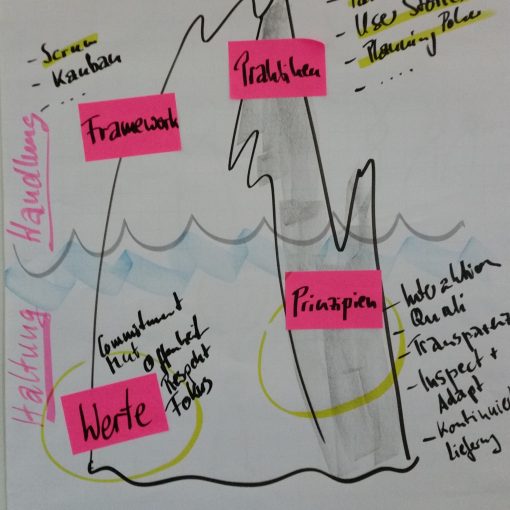 - Scrum
- Kanban
- ....
Framework
Praktiken
User Stories
- Planning Poker
- ....
Handlung
Haltung
Commitment
Mut
Offenheit
Respekt
Fokus
Werte
Prinzipien
- Interaktion
- Quali
- Transparenz
- Inspect +
Adapt
- Kontinuier
Lieferung